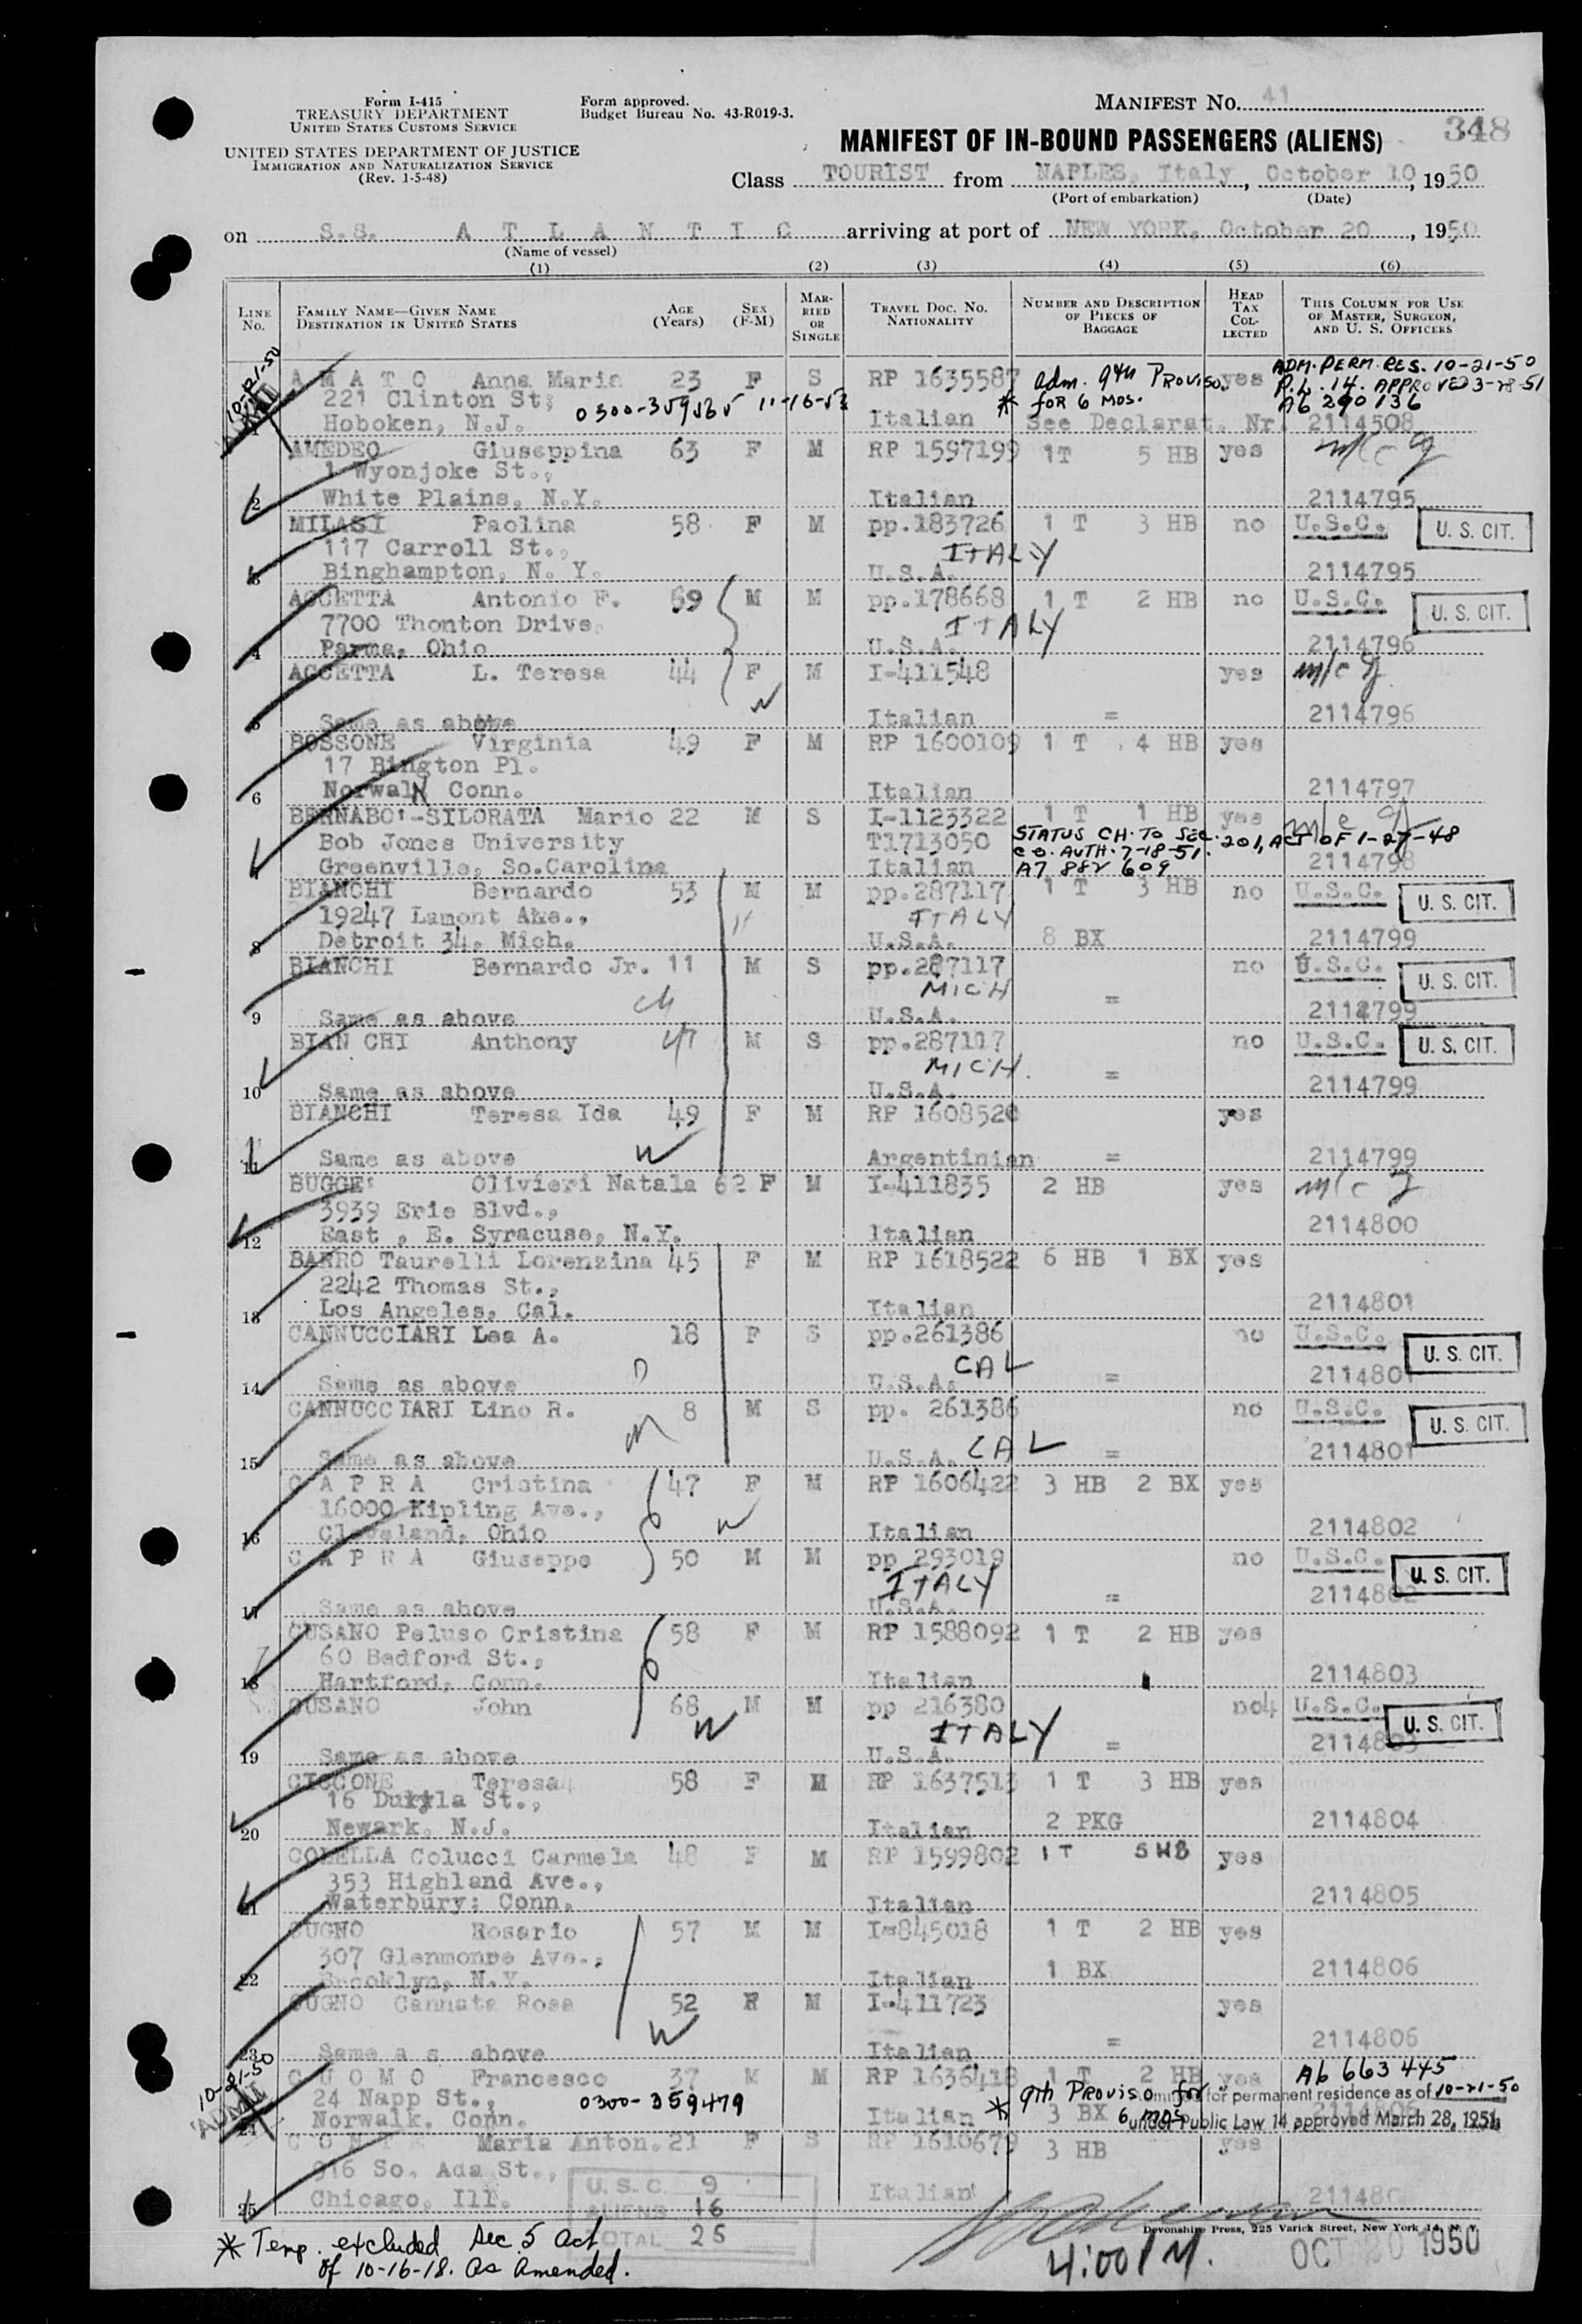 Form I-415
TREASURY DEPARTMENT
UNITED STATES CUSTOMS SERVICE
UNITED STATES DEPARTMENT OF JUSTICE
IMMIGRATION AND NATURALIZATION SERVICE
(Rev. 1-5-48)
Form approved.
Budget Bureau No. 43-R019-3.
MANIFEST NO. 41
MANIFEST OF IN-BOUND PASSENGERS (ALIENS) 348
Class TOURIST from NAPLES, Italy, October 10, 1950
(Port of embarkation) (Date)
on S.S. A T L A N T I C arriving at port of NEW YORK, October 20, 1950
(Name of vessel)
(1) (2) (3) (4) (5) (6)
LINE No. FAMILY NAME—GIVEN NAME DESTINATION IN UNITED STATES AGE (Years) SEX (F-M) MARRIED OR SINGLE TRAVEL DOC. NO. NATIONALITY NUMBER AND DESCRIPTION OF PIECES OF BAGGAGE HEAD TAX COLLECTED THIS COLUMN FOR USE OF MASTER, SURGEON, AND U. S. OFFICERS
10-21-50 ADM. PERM. RES. 10-21-50
A M A T O Anna Maria 23 F S RP 1635587 adm. 9th Proviso yes P.L. 14. APPROVED 3-28-51
221 Clinton St; 0300-359565 * FOR 6 MOS. A6 290 136
1 Hoboken, N.J. Italian See Declarat. Nr. 2114508
AMEDEO Giuseppina 63 F M RP 1597199 1T 5 HB yes
1 Wyonjoke St.,
2 White Plains, N.Y. Italian 2114795
MILASI Paolina 58 F M pp.183726 1 T 3 HB no U.S.C. U. S. CIT.
117 Carroll St., ITALY
3 Binghampton, N. Y. U.S.A. 2114795
ACCETTA Antonio F. 59 M M pp.178668 1 T 2 HB no U.S.C. U. S. CIT.
7700 Thonton Drive, ITALY
4 Parma, Ohio U.S.A. 2114796
ACCETTA L. Teresa 44 F M I-411548 yes
W
5 Same as above Italian = 2114796
BOSSONE Virginia 49 F M RP 1600109 1 T 4 HB yes
17 Bington Pl.
6 Norwalk Conn. Italian 2114797
BERNABO'-SILORATA Mario 22 M S I-1123322 1 T 1 HB yes
Bob Jones University T1713050 STATUS CH. TO SEC. 201, ACT OF 1-27-48
C.O. AUTH. 7-18-51.
7 Greenville, So.Carolina Italian A7 882 609 2114798
BIANCHI Bernardo 53 M M pp.287117 1 T 3 HB no U.S.C. U. S. CIT.
19247 Lamont Ave., H ITALY
8 Detroit 34. Mich. U.S.A. 8 BX 2114799
BIANCHI Bernardo Jr. 11 M S pp.287117 no U.S.C. U. S. CIT.
MICH
9 Same as above U.S.A. = 2114799
BIAN CHI Anthony M S pp.287117 no U.S.C. U. S. CIT.
MICH.
10 Same as above U.S.A. = 2114799
BIANCHI Teresa Ida 49 F M RP 1608520 yes
W
11 Same as above Argentinian = 2114799
BUGGE' Olivieri Natala 62 F M I-411835 2 HB yes
3939 Erie Blvd.,
12 East , E. Syracuse, N.Y. Italian 2114800
BARRO Taurelli Lorenzina 45 F M RP 1618522 6 HB 1 BX yes
2242 Thomas St.,
13 Los Angeles, Cal. Italian 2114801
CANNUCCIARI Lea A. 18 F S pp.261386 no U.S.C. U. S. CIT.
D CAL
14 Same as above U.S.A. = 2114801
CANNUCCIARI Lino R. 8 M S pp. 261386 no U.S.C. U. S. CIT.
15 Same as above U.S.A. CAL = 2114801
C A P R A Cristina 47 F M RP 1606422 3 HB 2 BX yes
16000 Kipling Ave., W
16 Cleveland, Ohio Italian 2114802
C A P R A Giuseppe 50 M M pp 293019 no U.S.C. U. S. CIT.
ITALY
17 Same as above U.S.A. = 2114802
CUSANO Peluso Cristina 58 F M RP 1588092 1 T 2 HB yes
60 Bedford St.,
18 Hartford, Conn. Italian 2114803
CUSANO John 68 M M pp 216380 no U.S.C. U. S. CIT.
W ITALY
19 Same as above U.S.A. = 2114803
CICCONE Teresa 58 F M RP 1637513 1 T 3 HB yes
16 St.,
20 Newark, N.J. Italian 2 PKG 2114804
COLELLA Colucci Carmela 48 F M RP 1599802 1 T 5 HB yes
353 Highland Ave.,
21 Waterbury; Conn. Italian 2114805
CUGNO Rosario 57 M M I-845018 1 T 2 HB yes
307 Glenmonre Ave.,
22 Brooklyn, N.Y. Italian 1 BX 2114806
CUGNO Cannata Rosa 52 F M I-411723 yes
W
23 Same a s above Italian = 2114806
10-21-50
C U O M O Francesco 37 M M RP 1636418 1 T 2 HB yes A6 663 445
24 Napp St., 0300-359479 * 9th Proviso for for permanent residence as of 10-21-50
24 Norwalk, Conn. Italian 3 BX 6 mos under Public Law 14 approved March 28, 1951
Maria Anton. 21 F S RP 1610679 3 HB yes
916 So. Ada St.,
25 Chicago, Ill. Italian
U.S.C. 9
ALIENS 16
TOTAL 25
* Temp. excluded Sec. 5 act
of 10-16-18. as amended.
Devonshire Press, 225 Varick Street, New York 14, N. Y.
4:00 PM.
OCT 20 1950